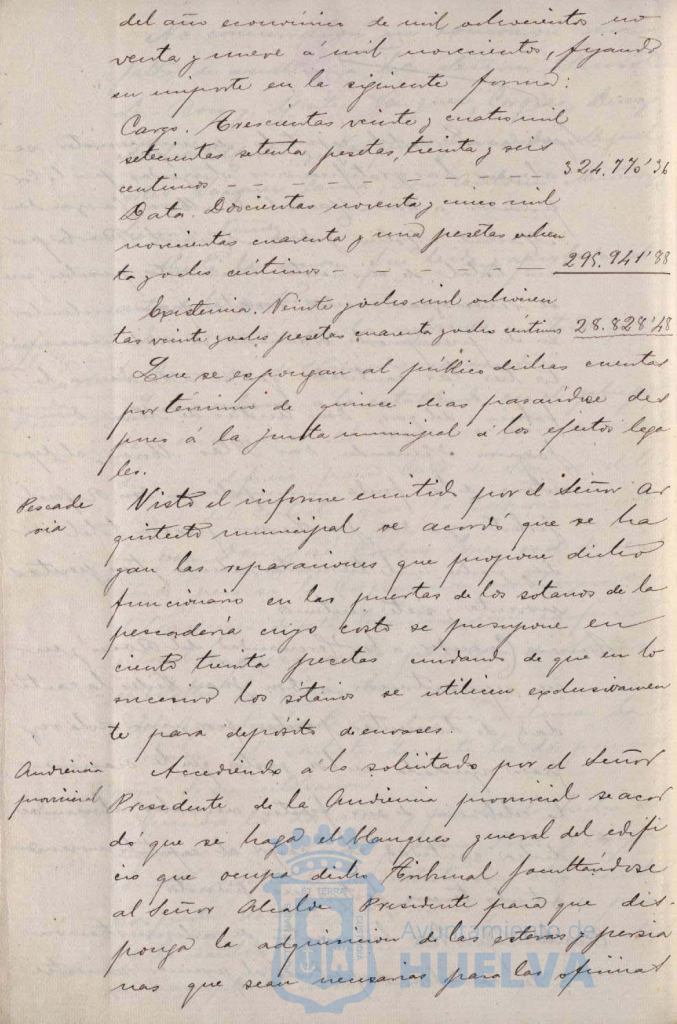 del año económico de mil ochocientos no
venta y nueve á mil novecientos, fijando
su importe en la siguiente forma:
Cargo. Trescientas veinte y cuatro mil
setecientas setenta pesetas, treinta y seis
centimos - - - - - - - - - 324.770'36
Data. Doscientas noventa y cinco mil
novecientas cuarenta y una pesetas ochen
ta y ocho centimos - - - - - - 295.941'88
Existencia. Veinte y ocho mil ochocien
tas veinte y ocho pesetas cuarenta y ocho céntimos 28.828'48
Que se expongan al público dichas cuentas
por término de quince dias pasandose des
pues á la junta municipal á los efectos lega
les.
Pescade
ria
Visto el informe emitido por el Señor Ar
quitecto municipal se acordó que se ha
gan las reparaciones que propone dicho
funcionario en las puertas de los sótanos de la
pescadería cuyo costo se presupone en
ciento treinta pesetas cuidando de que en lo
sucesivo los sótanos se utilicen exclusivamen
te para depósito de envases.
Audiencia
provincial
Accediendo á lo solicitado por el Señor
Presidente de la Audiencia provincial se acor
dó que se haga el blanqueo general del edifi
cio que ocupa dicho Tribunal facultándose
al Señor Alcalde Presidente para que dis-
ponga la adquisicion de las esteras y persia
nas que sean necesarias para las oficinas
Ayuntamiento de
HUELVA